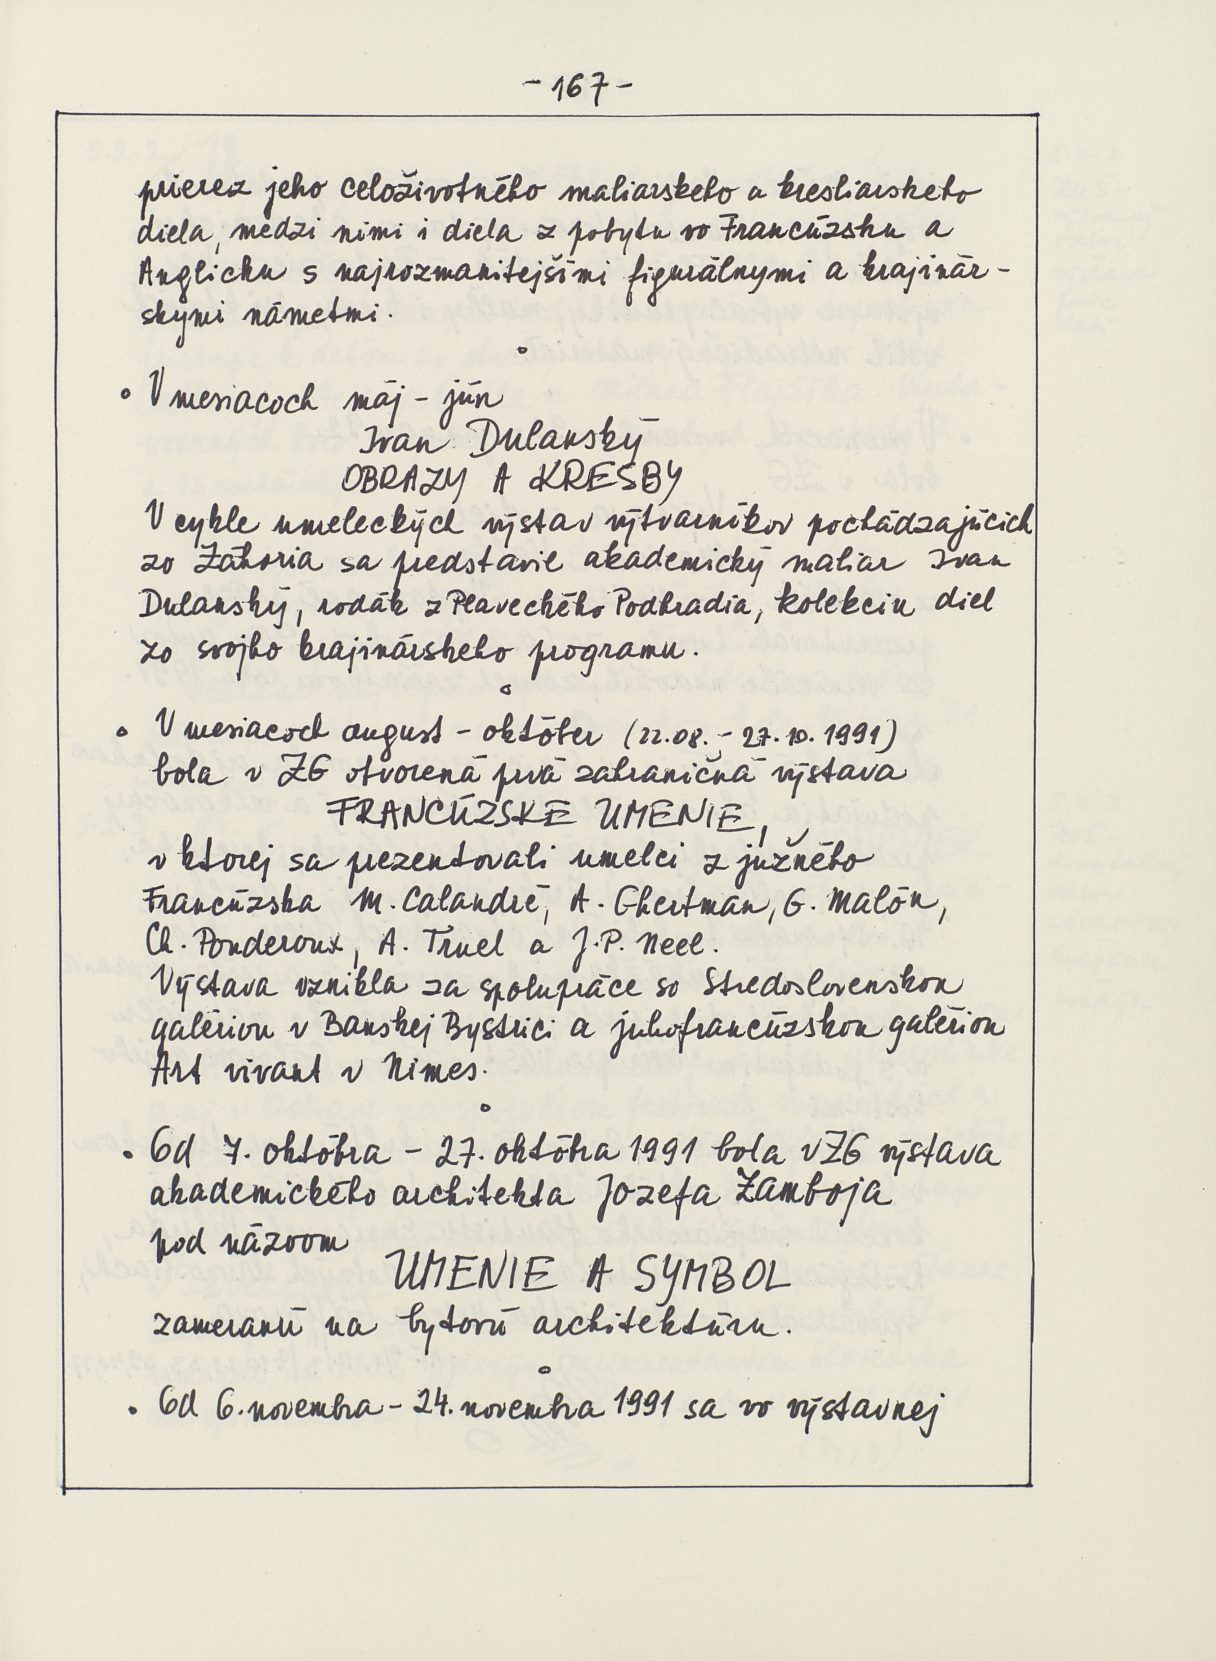 - 167 -
prierez jeho celoživotného maliarskeho a kresliarskeho
diela, medzi nimi i diela z pobytu vo Francúzsku a
Anglicku s najrozmanitejšími figurálnymi a krajinár-
skymi námetmi.
V mesiacoch máj - jún
Ivan Dulanský
OBRAZY A KRESBY
V cykle umeleckých výstav výtvarníkov pochádzajúcich
zo Záhoria sa predstavil akademický maliar Ivan
Dulanský, rodák z Plaveckého Podhradia, kolekciu diel
zo svojho krajinárskeho programu.
V mesiacoch august - október (22.08. - 27.10.1991)
bola v ZG otvorená prvá zahraničná výstava
FRANCÚZSKE UMENIE,
v ktorej sa prezentovali umelci z južného
Francúzska M. Calandré, A. Ghertman, G. Malón,
Ch. Ponderoux, A. Truel a J.P. Neel.
Výstava vznikla za spolupráce so Stredoslovenskou
galériou v Banskej Bystrici a juhofrancúzskou galériou
Art vivant v Nimes.
Od 7. októbra - 27. októbra 1991 bola v ZG výstava
akademického architekta Jozefa Zamboja
pod názvom
UMENIE A SYMBOL
zameranú na bytovú architektúru.
Od 6. novembra - 24. novembra 1991 sa vo výstavnej